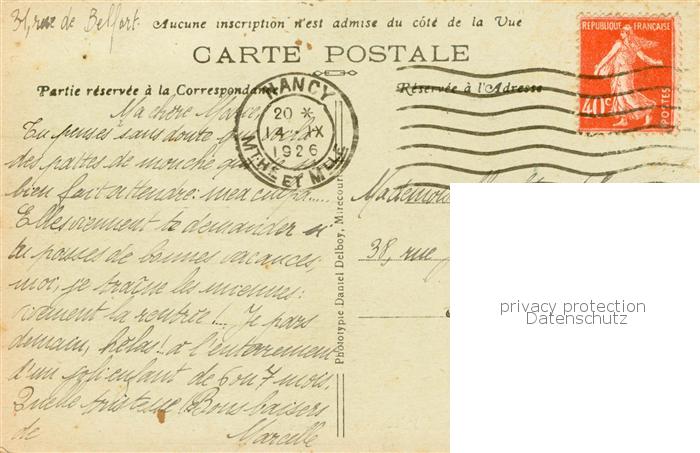 31, rue de Belfort.
Aucune inscription n'est admise du côté de la Vue
CARTE POSTALE
Partie réservée à la Correspondance
Réservée à l'Adresse
RÉPUBLIQUE FRANÇAISE
40c
POSTES
NANCY
20 *
14 IX
1926
MTHE ET MELE
Ma chère
Tu penses sans doute que
des pattes de mouche
bien fait attendre: mea culpa.....
Elles viennent te demander si
tu passes de bonnes vacances,
moi, je traîne les miennes:
vivement la rentrée!... Je pars
demain, hélas!.. à l'enterrement
d'un joli enfant de 6 ou 7 mois.
Quelle tristesse! Bons baisers
de Marcelle
Phototypie Daniel Delboy, Mirecourt
38, rue
privacy protection
Datenschutz